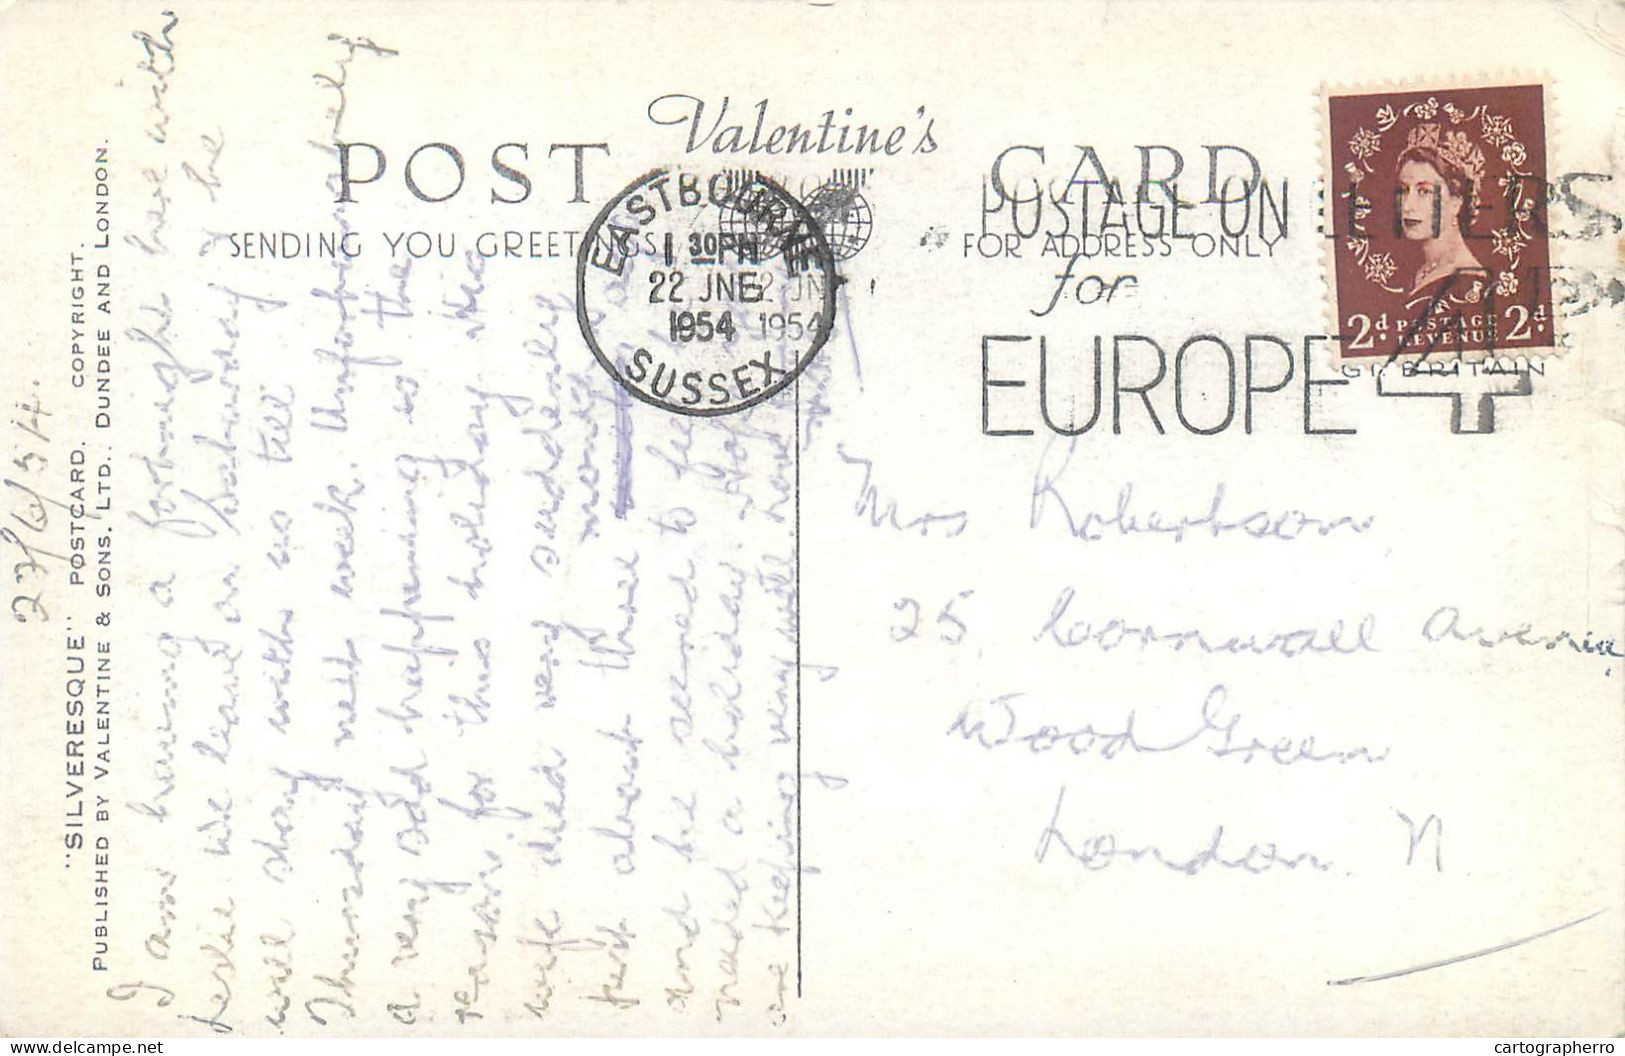 Valentine's
POST CARD
SENDING YOU GREETINGS
FOR ADDRESS ONLY
EASTBOURNE
1 30 PM
22 JNE
1954
SUSSEX
2 JN
1954
POSTAGE ON LETTERS
for
EUROPE 4
GT. BRITAIN
2d POSTAGE REVENUE 2d
"SILVERESQUE" POSTCARD. COPYRIGHT.
PUBLISHED BY VALENTINE & SONS, LTD., DUNDEE AND LONDON.
22/6/54.
I am having a fortnight here with
Leslie. We leave on Saturday & he
will stay with us till
Thursday next week. Unfortunately
a very sad happening is the
reason for this holiday. His
wife died very suddenly
just about three months ago
and he seemed to feel he
needed a holiday. Hope you
are keeping very well.
Mrs Robertson,
25, Cornwall Avenue,
Wood Green
London. N
cartographerro